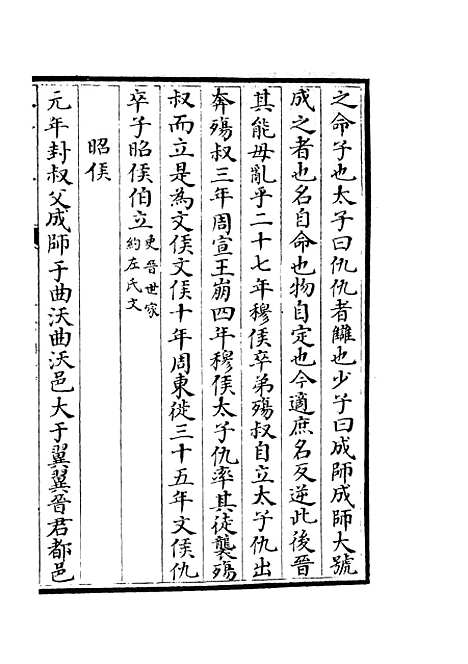 之命子也太子曰仇仇者讎也少子曰成師成師大號
成之者也名自命也物自定也今適庶名反逆此後晉
其能毋亂乎二十七年穆侯卒弟殤叔自立太子仇出
奔殤叔三年周宣王崩四年穆侯太子仇率其徒襲殤
叔而立是為文侯文侯十年周東徙三十五年文侯仇
卒子昭侯伯立史晉世家約左氏文
昭侯
元年封叔父成師于曲沃曲沃邑大于翼翼晉君都邑